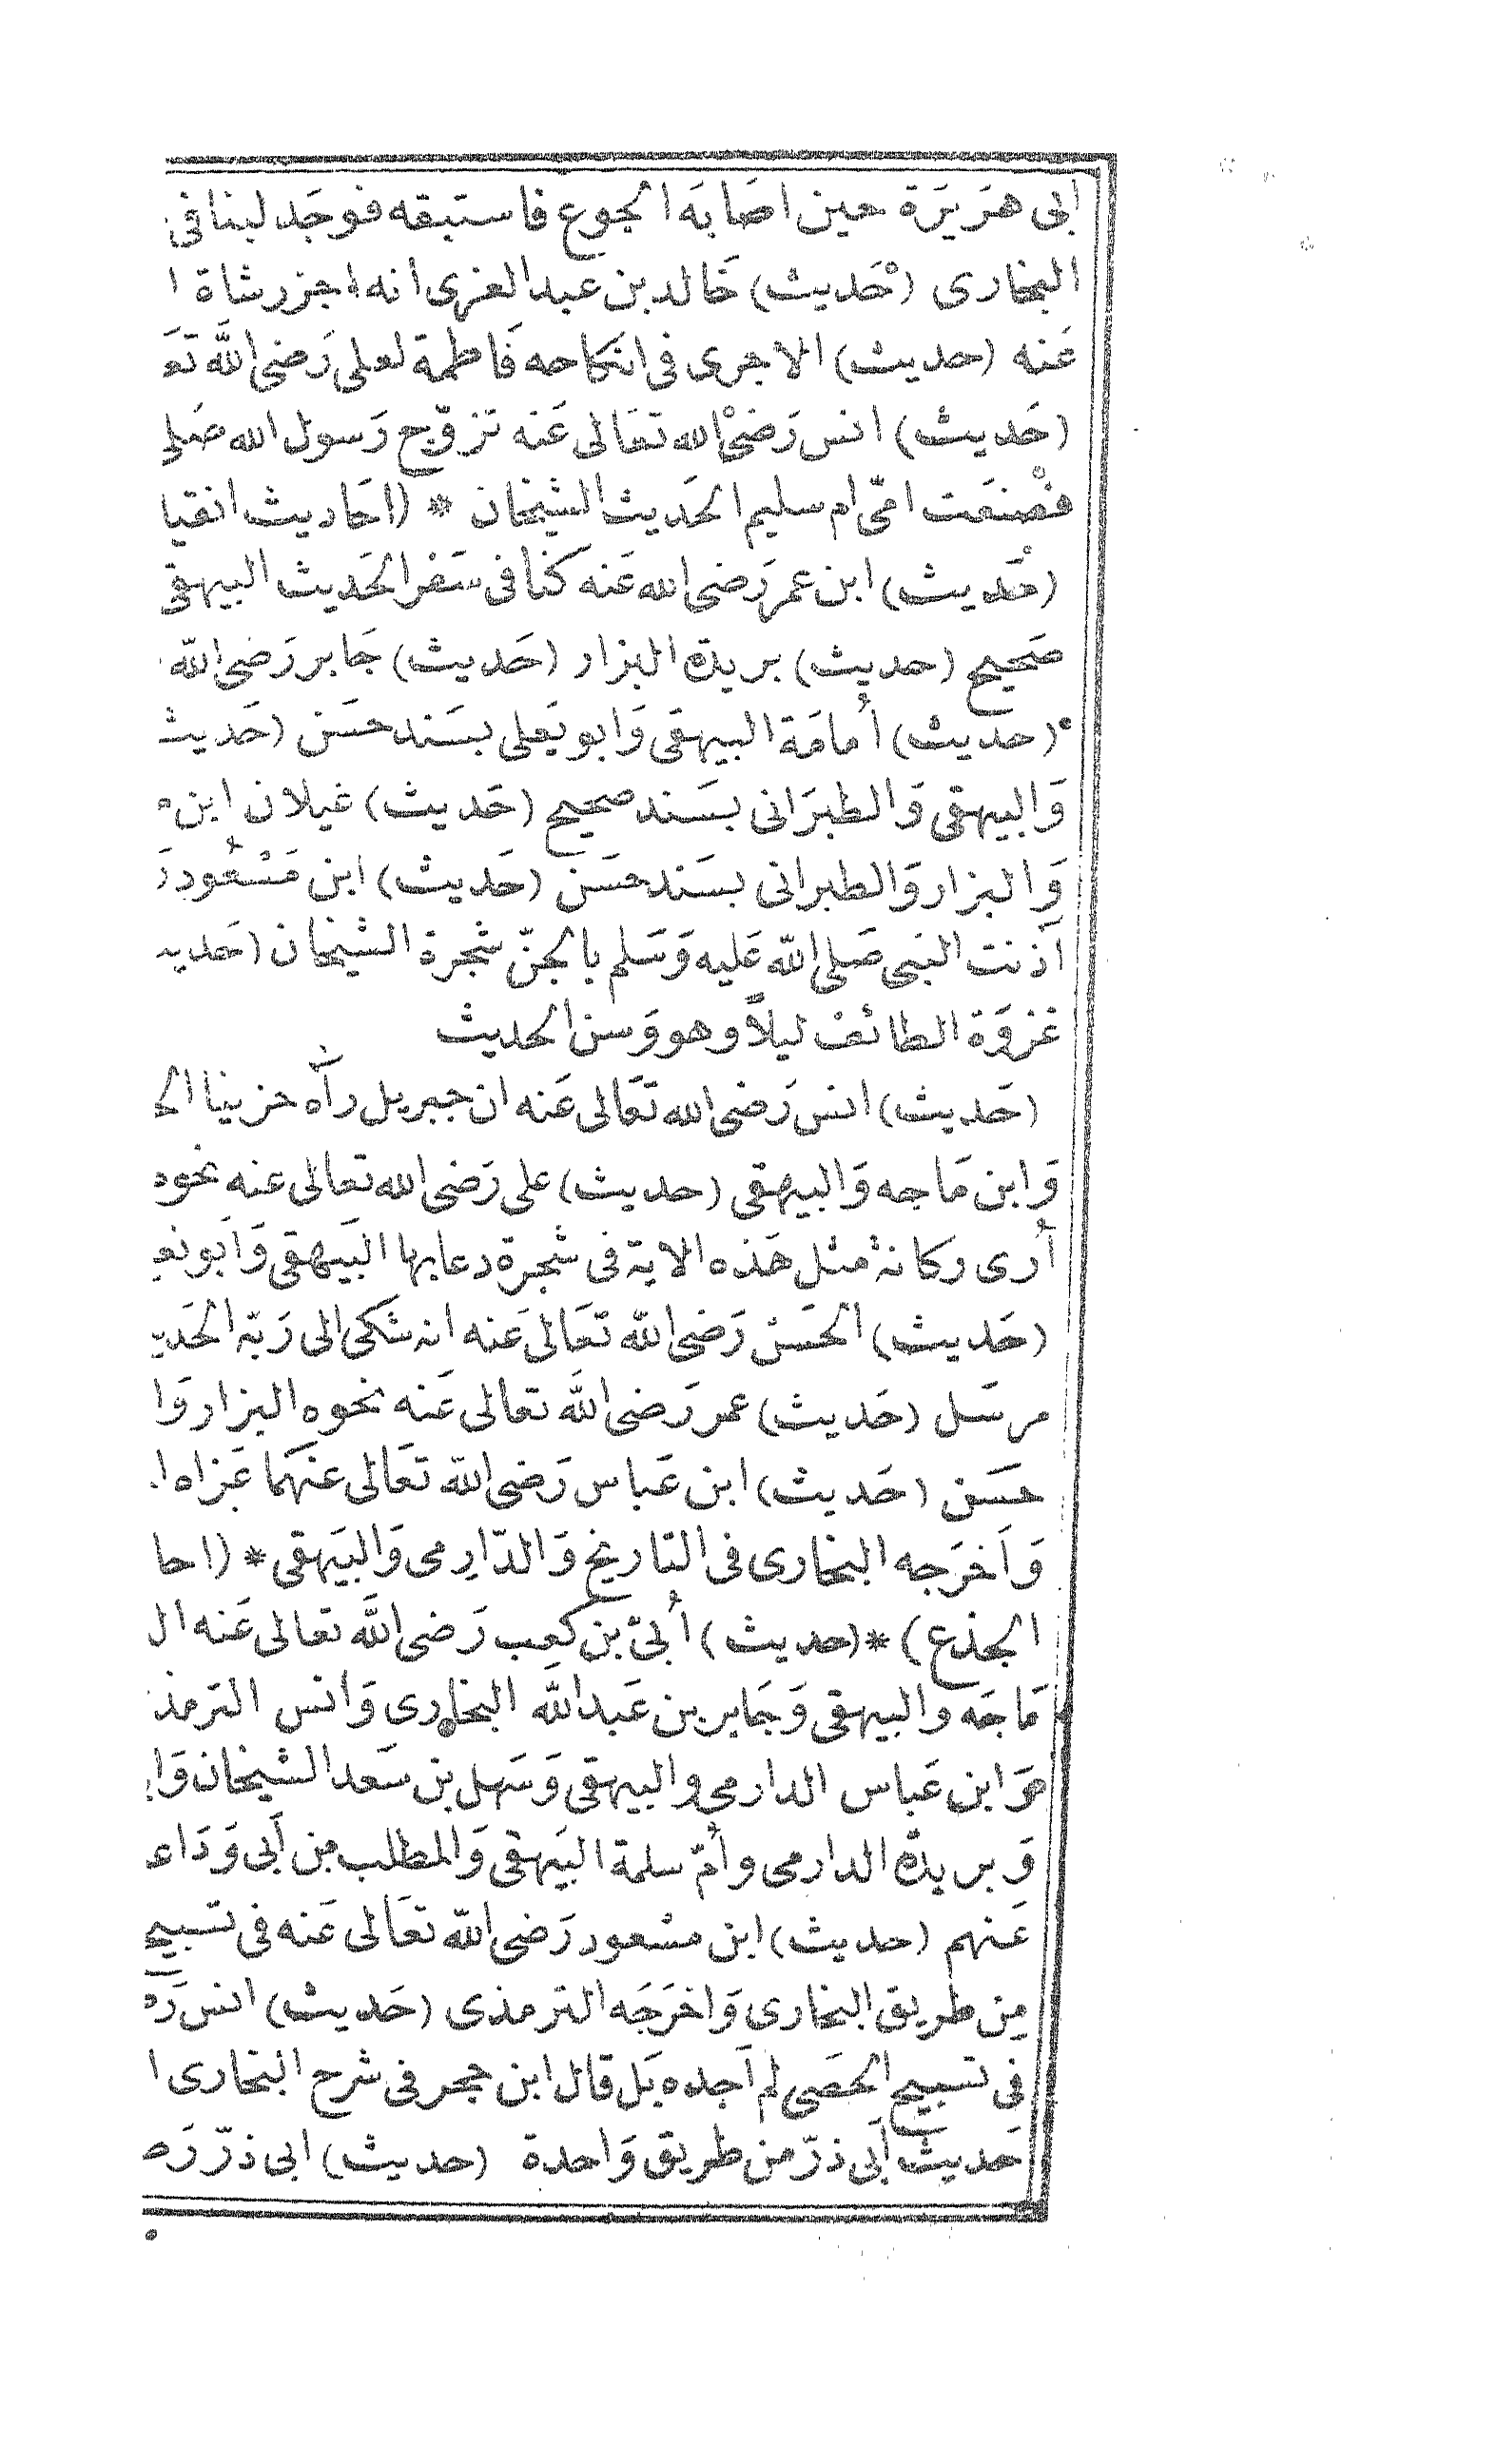 أبى هرَيرَة حين اصَابهَ الجوع فاستبقه فوجَد لبنا فى
البخارى (حَديث) خَالد بن عبد العزى أنه اجزر شاة ا
عَنه (حديث) الاجرى فى انكاحه فَاطمة لعلى رَضى اللَّه تعَ
(حَديث) انس رَضىَ الله تعَالى عَنه تزوّج رَسول الله صَلى
فصْنعَت امّى ام سليم الحَديث الشيخان * (احَاديث انقيا
(حَديث) ابن عمر رَضى الله عَنه كنا فى سَفر الحَديث البيهقى
صَحيح (حديث) بريدة البزار (حَديث) جَابر رَضى اللّه
(حديث) أُمامَة البيهقى وَابو يَعلى بسَند حسَن (حَديث
وَالبيهقى وَالطبرَانى بسَند صحيح (حَديث) غيلان ابن
وَالبزار وَالطبرانى بسَند حسَن (حَديث) ابن مَسْعُود رَ
آذنت النبى صَلى اللّه عَليه وَسَلم بالجنّ شجرة الشيخان (حَديـ
غزوَة الطائف ليلاً وهو وَسن الحديث
(حَديث) انس رَضى الله تعَالى عَنه ان جبريل رآه حزينا الحـ
وَابن مَاجه وَالبيهقى (حديث) على رَضى الله تعالى عنه نحوه
أُرى ركانة مثل هَذه الاية فى شجرة دعا بها البَيهقى وَأبو نعـ
(حَديث) الحَسَن رَضى اللّه تعَالى عَنه انه شكى الى رَبّه الحَديـ
مرسَل (حَديث) عمر رَضى اللَّه تعالى عَنه نحوه البزار وَا
حسَن (حَديث) ابن عَباس رَضى اللّه تعَالى عنهَما عَزاه ا
وَاَخرَجه البخارى فى التاريخ وَالدّارِمى وَالبيَهقى * (احا
الجذع) * (حديث) أُبىّ بن كعب رَضى اللَّه تعالى عَنه ال
مَاجَه والبيهقى وَجَابر بن عَبد اللَّه البخارى وَانس الترمذ
وَابن عَباس الدارمى والبيهقى وَسَهل بن سَعد الشيخان وَا
وَبريدَة الدارمى وأُمّ سلمة البَيهقى وَالمطلب بن أبى وَدَاع
عَنهم (حديث) ابن مسْعود رَضى اللّه تعَالى عَنه فى تسْبيح
مِن طريق البخارى وَاخرَجَه الترمذى (حَديث) انس رَ
فى تسبيح الحَصَى لم اَجده بَل قال ابن حجر فى شرح البخارى ا
حَديث أَبى ذرّ من طريق وَاحدة (حديث) ابى ذرّ رَض